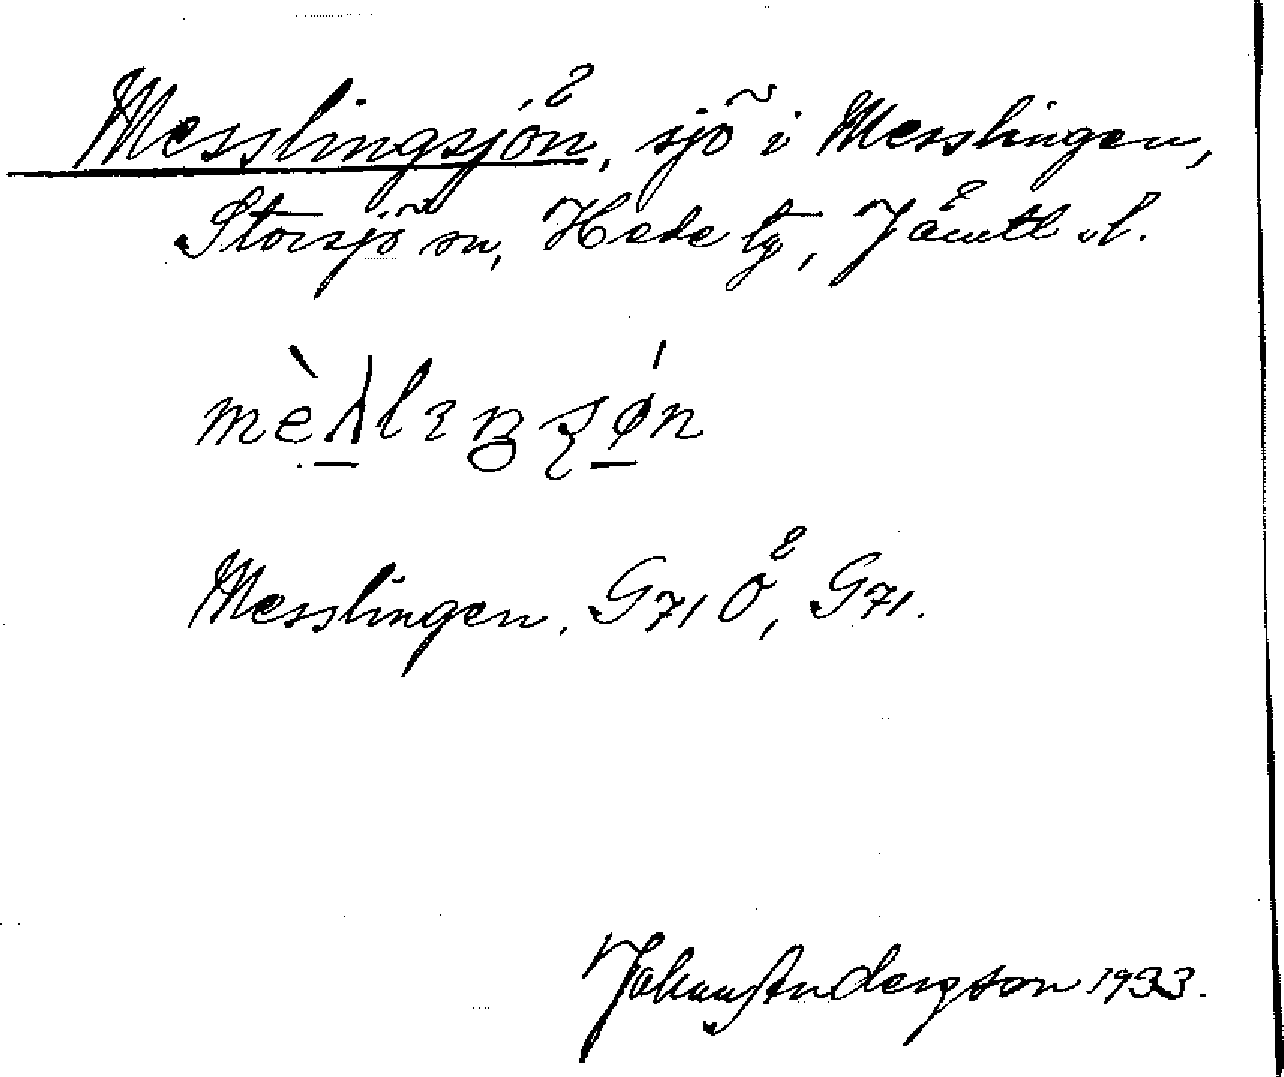 Messlingsjön, sjö i Messlingen,
Storsjö sn, Hede tg, Jämtl. l.
Messlingen. G71 Ö, G71.
Johan Anderson 1933.